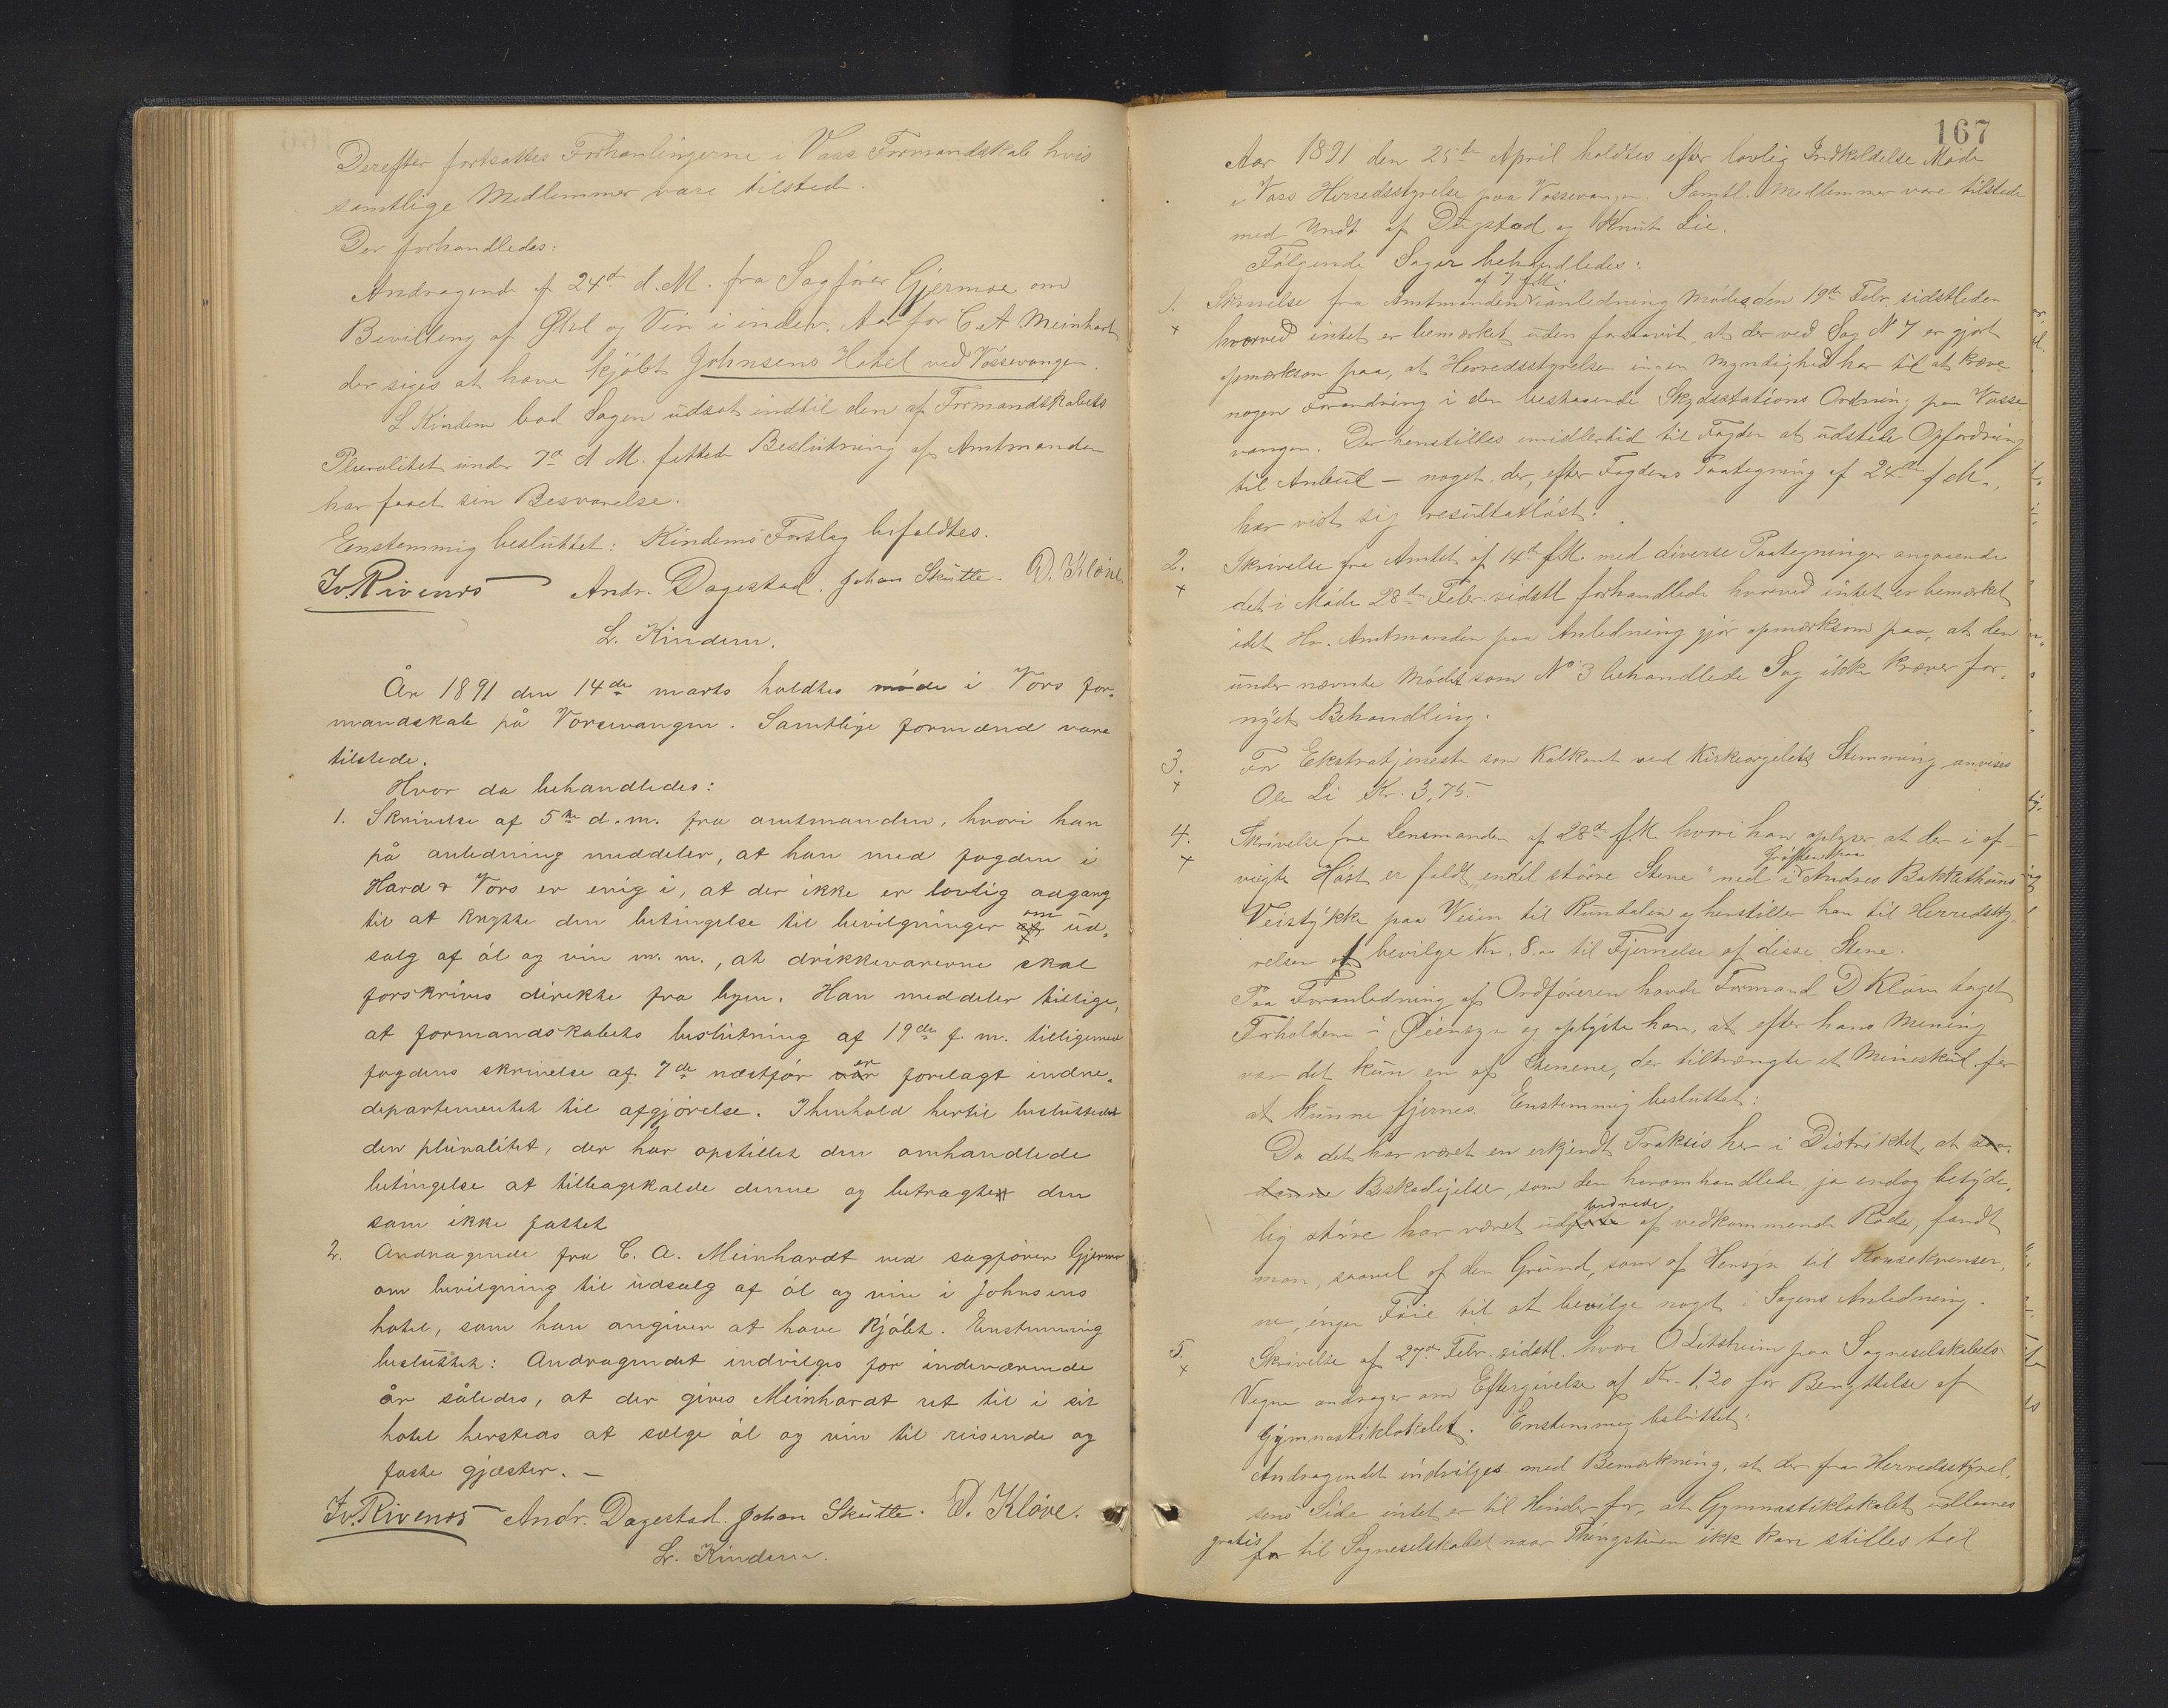 Derefter fortsattes Forhanlingerne i Voss Formandskab hvis
samtlige Medlemmer vare tilstede.
Der forhandledes:
Andragende af 24de d. M. fra Sagfører Gjermoe om
Bevilling af Øhl og Vin i indev. Aar for C. A. Meinhardt
der siges at have kjøbt Johnsens Hotel ved Vossevangen.
L Kindem bad Sagen udsat indtil den af Formandskabets
Pluralitet under 7de d M. fattede Beslutning af Amtmanden
har faaet sin Besvarelse.
Enstemmig besluttet: Kindems Forslag bifaldtes.
Iv. Rivenes Andr. Dagestad. Johan Skutle. D. Kløve
L. Kindem.
År 1891 den 14de marts holdtes møde i Vors for-
mandskab på Vorsevangen. Samtlige formænd vare
tilstede.
Hvor da behandledes:
1. Skrivelse af 5te d. m. fra amtmanden, hvori han
på anledning meddeler, at han med fogden i
Hard & Vors er enig i, at der ikke er lovlig adgang
til at knytte den betingelse til bevilgninger om ud-
salg af øl og vin m. m., at drikkevarerne skal
forskrives direkte fra byen. Han meddeler tillige,
at formandskabets beslutning af 19de f. m. tilligemed
fogdens skrivelse af 7de næstfør er forelagt indre-
departementet til afgjørelse. I henhold hertil besluttede
den pluralitet, der har opstillet den omhandlede
betingelse at tilbagekalde denne og betragte den
som ikke fattet
2. Andragende fra C. A. Meinhardt ved sagfører Gjermo
om bevilgning til udsalg af øl og vin i Johnsens
hotel, som han angiver at have kjøbt. Enstemmig
besluttet: Andragendet indvilges for indeværende
år således, at der gives Meinhardt ret til i sit
hotel hersteds at sælge øl og vin til reisende og
faste gjæster. —
Iv. Rivenes Andr. Dagestad. Johan Skutle. D. Kløve.
L. Kindem.
167
Aar 1891 den 25de April holdtes efter lovlig Indkaldelse Møde
i Voss Herredsstyrelse paa Vossevangen. Samtl. Medlemmer vare tilstede
med Undt. af Dagstad og Knut Lie.
Følgende Sager behandledes:
1. Skrivelse fra Amtmanden af 7 f.M. i anledning Mødet den 19de Febr. sidstleden
hvorved intet er bemærket uden forsaavidt, at der ved Sag № 7 er gjort
opmærksom paa, at Herredsstyrelsen ingen Myndighed har til at kræve
nogen Forandring i den bestaaende Skydsstations Ordning paa Vosse
vangen. Der henstilles imidlertid til Fogden at udstede Opfordring
til Anbud — noget, der, efter Fogdens Paategning af 24de f M.,
har vist sig resultatløst.
2. Skrivelse fra Amtet af 14de f.M. med diverse Paategninger angaaende
det i Møde 28de Febr. sidstl forhandlede hvorved intet er bemærket
idet Hr. Amtmanden paa Anledning gjør opmærksom paa, at den
under nævnte Møde som № 3 behandlede Sag ikke kræver for-
nyet Behandling.
3. For Ekstratjeneste som Kalkant ved Kirkeorgelets Stemming anvises
Ole Li Kr. 3,75.
4. Skrivelse fra Lensmanden af 28de f.M. hvori han oplyser at der i af-
vigte Høst er faldt „endel større Stene" ned i Grøften paa Andres Bakkethuns
Veistykke paa Veien til Rundalen og henstiller han til Herredssty-
relsen at bevilge Kr. 8.00 til Fjernelse af disse Stene.
Paa Foranledning af Ordføreren havde Formand D Kløve taget
Forholdene i Øiensyn og oplyste han, at efter hans Mening
var det kun en af Stenene, der tiltrængte et Mineskud for
at kunne fjernes. Enstemmig besluttet:
Da det har været en erkjendt Praksis her i Distriktet, at saa-
danne Beskadigelser, som den heromhandlede, ja endog betyde-
lig større har været udbedrede af vedkommende Rode, fandt
man, saavel af den Grund, som af Hensyn til Konsekvenser-
ne, ingen Føie til at bevilge noget i Sagens Anledning.
5. Skrivelse af 27de Febr. sidstl. hvori O Litsheim paa Sogneselskabets
Vegne andrager om Eftergivelse af Kr. 1,20 for Benyttelse af
Gymnastiklokalet. Enstemmig besluttet:
Andragendet indvilges med Bemærkning, at der fra Herredsstyrel-
sens Side intet er til Hinder for, at Gymnastiklokalet udlaanes
gratis til Sogneselskabet naar Thingstuen ikke kan stilles til